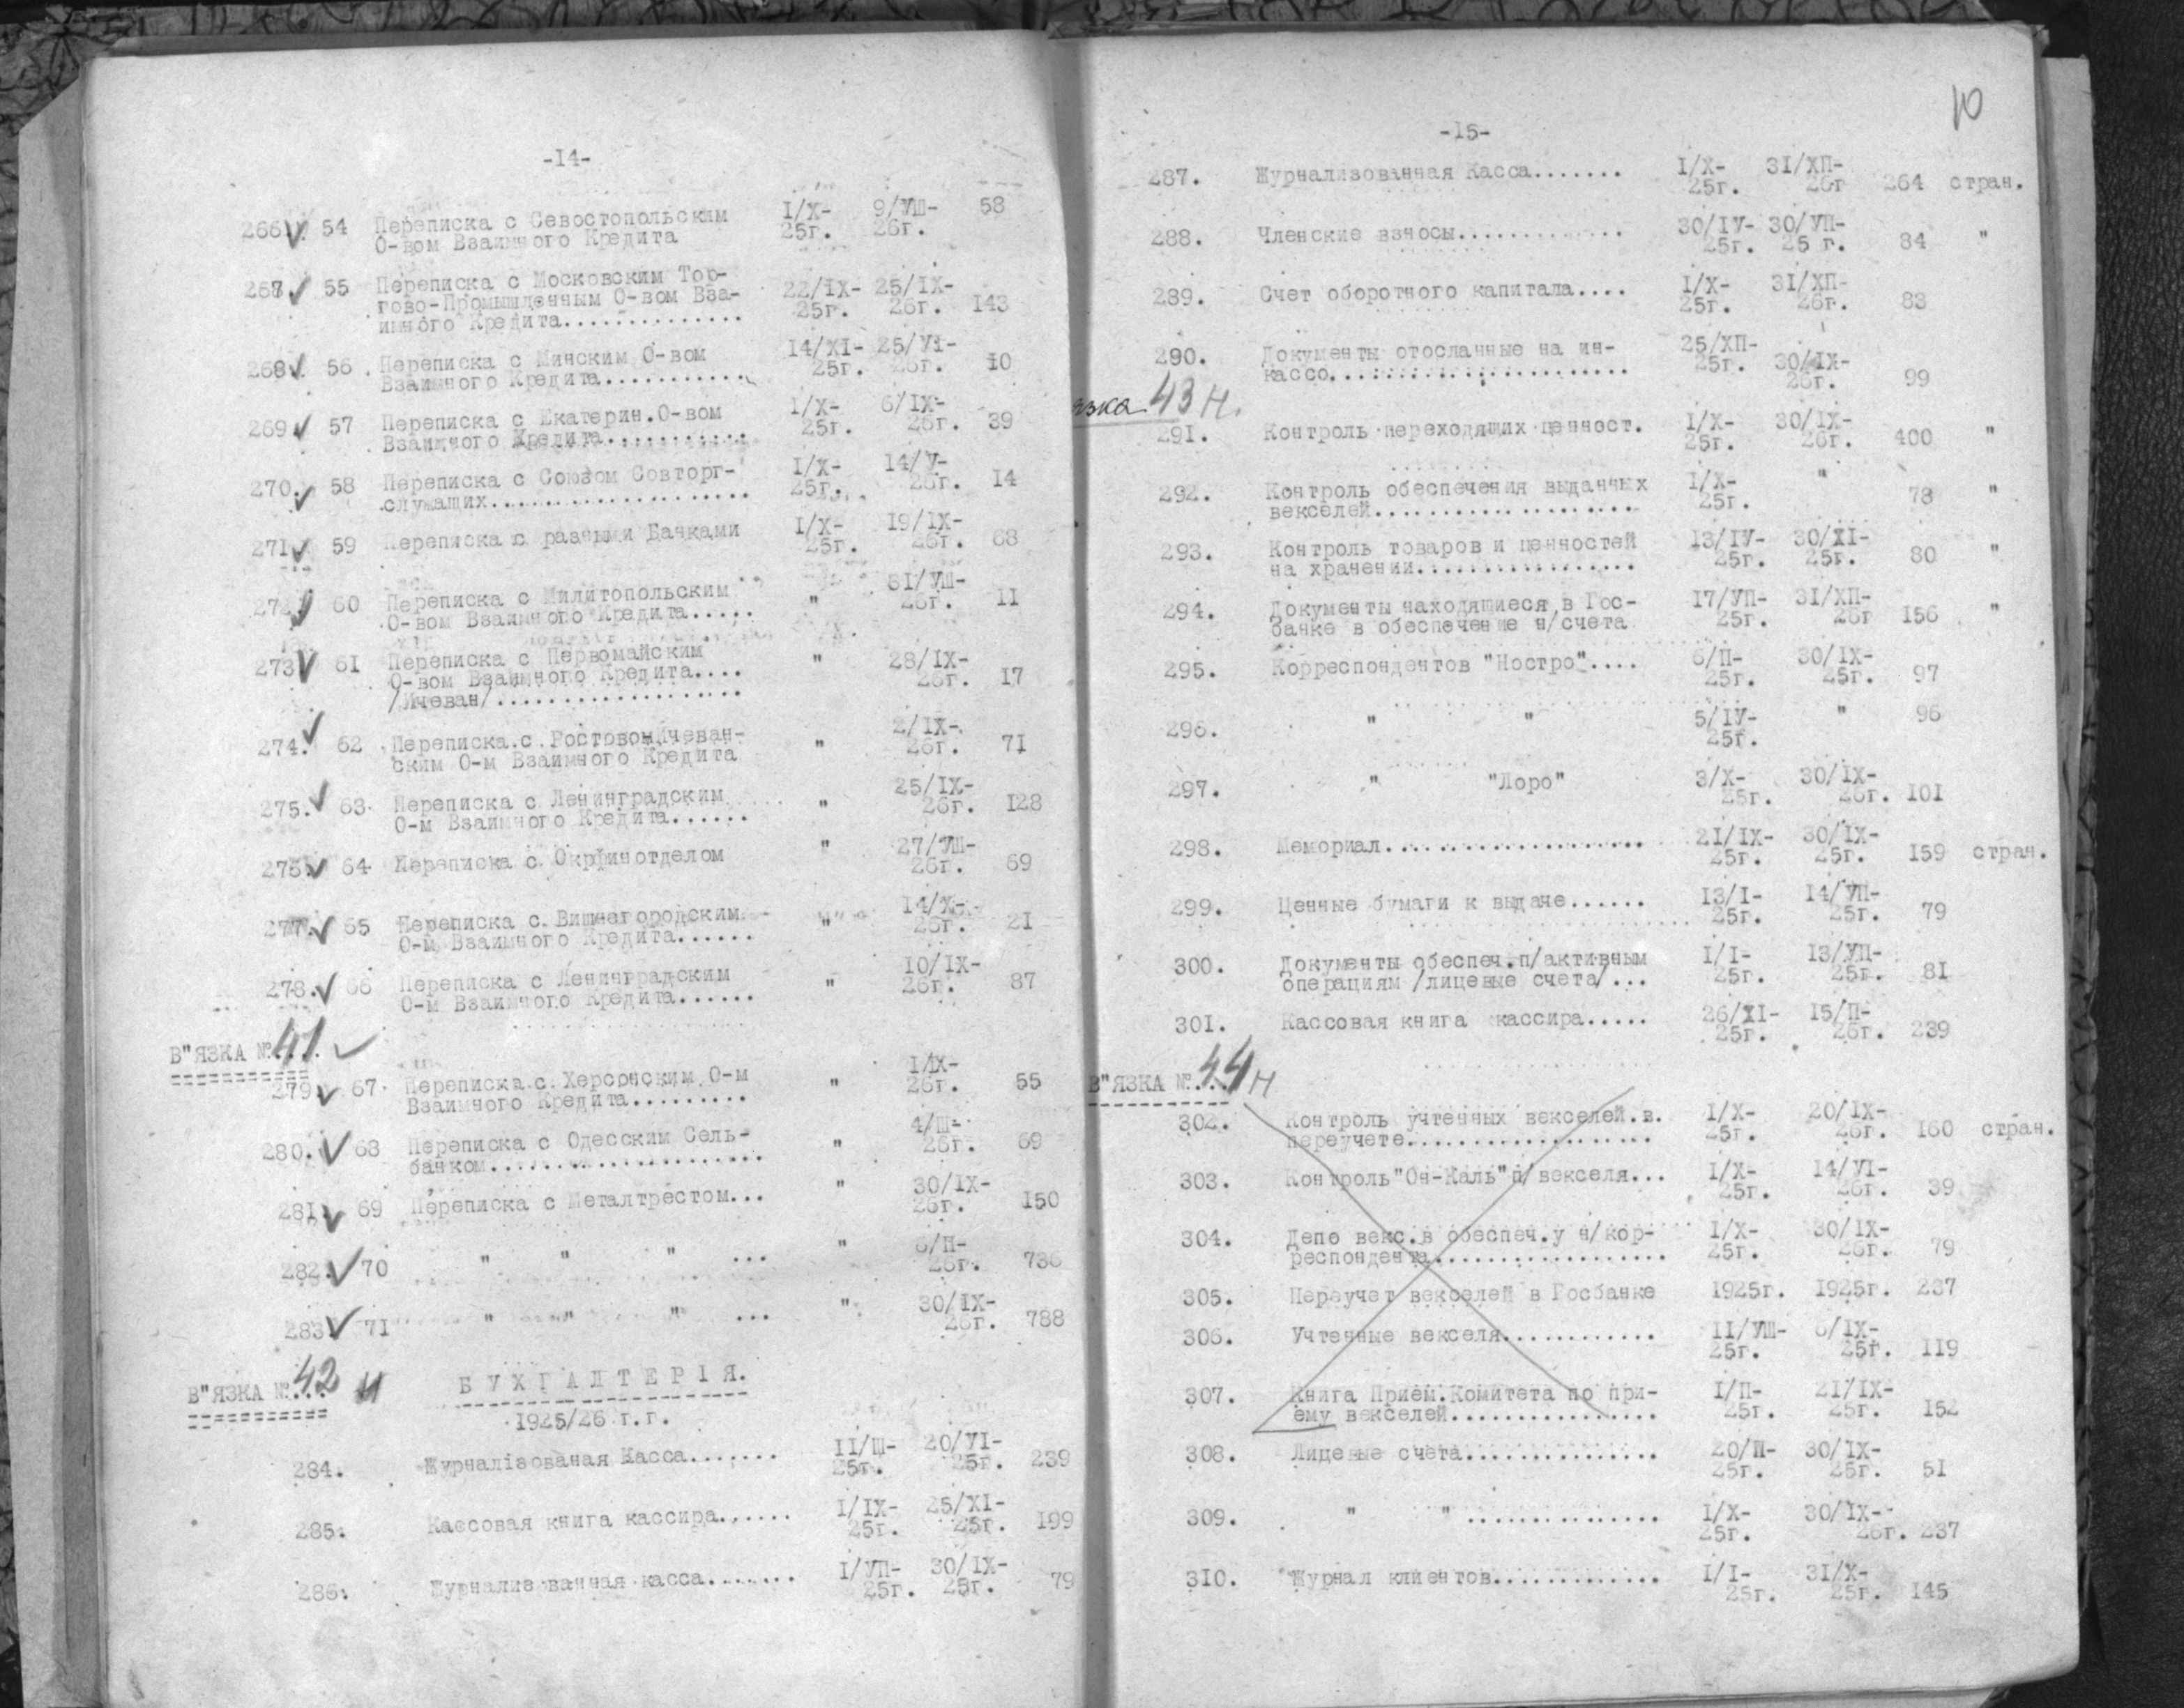 -14-
266. 54 Переписка с Севостопольским I/X- 9/УШ- 58
О-вом Взаимного Кредита 25г. 26г.
267. 55 Переписка с Московским Тор-
гово-Промышленным О-вом Вза- 22/IX- 25/IX-
имного Кредита.............. 25г. 26г. 143
268. 56 Переписка с Минским О-вом 14/XI- 25/УI-
Взаимного Кредита........... 25г. 26г. 10
269. 57 Переписка с Екатерин.О-вом I/X- 6/IX-
Взаимного Кредита........... 25г. 26г. 39
270. 58 Переписка с Союзом Совторг- I/X- 14/У-
служащих.................... 25г. 26г. 14
271. 59 Переписка с разными Банками I/X- 19/IX-
25г. 26г. 68
272. 60 Переписка с Милитопольским " 31/УШ-
О-вом Взаимного Кредита..... 26г. 11
273. 61 Переписка с Первомайским " 28/IX-
О-вом Взаимного Кредита.... 26г. 17
/Ичеван/...................
274. 62 Переписка с Ростовоничеван- " 2/IX-
ским О-м Взаимного Кредита 26г. 71
275. 63 Переписка с Ленинградским " 25/IX-
О-м Взаимного Кредита...... 26г. 128
276. 64 Переписка с Окрфинотделом " 27/УШ-
26г. 69
277. 65 Переписка с Вишнегородским " 14/X-
О-м Взаимного Кредита...... 26г. 21
278. 66 Переписка с Ленинградским " 10/IX-
О-м Взаимного Кредита...... 26г. 87
В"ЯЗКА №.41..
279. 67 Переписка с Херсонским О-м " I/IX-
Взаимного Кредита......... 26г. 55
280. 68 Переписка с Одесским Сель- " 4/Ш-
банком..................... 26г. 69
281. 69 Переписка с Металтрестом... " 30/IX-
26г. 150
282. 70 " " " ... " 6/П-
26г. 736
283. 71 " " " ... " 30/IX-
26г. 788
В"ЯЗКА №.42.. н БУХГАЛТЕРІЯ.
1925/26 г.г.
284. Журналізованая Касса....... 11/Ш- 20/УI-
25г. 25г. 239
285. Кассовая книга кассира...... I/IX- 25/XI-
25г. 25г. 199
286. Журнализованная касса....... I/УП- 30/IX-
25г. 25г. 79
10
-15-
287. Журнализованная Касса....... I/X- 31/ХП-
25г. 26г 264 стран.
288. Членские взносы............. 30/IУ- 30/УП-
25г. 25 г. 84 "
289. Счет оборотного капитала.... I/X- 31/ХП-
25г. 26г. 83
290. Документы отосланные на ин- 25/ХП-
кассо....................... 25г. 30/IX-
26г. 99
язка 43 н.
291. Контроль переходящих ценност. I/X- 30/IX-
25г. 26г. 400 "
292. Контроль обеспечения выданных I/X- "
векселей.................... 25г. 78 "
293. Контроль товаров и ценностей 13/IУ- 30/XI-
на хранении................. 25г. 25г. 80 "
294. Документы находящиеся в Гос- 17/УП- 31/ХП-
банке в обеспечение н/счета 25г. 26г 156 "
295. Корреспондентов "Ностро".... 6/П- 30/IX-
25г. 25г. 97
296. " " 5/IУ- " 96
25г.
297. " "Лоро" 3/X- 30/IX-
25г. 26г. 101
298. Мемориал.................... 21/IX- 30/IX-
25г. 25г. 159 стран.
299. Ценные бумаги к выдаче...... 13/I- 14/УП-
25г. 25г. 79
300. Документы обеспеч.п/активным I/I- 13/УП-
операциям /лицевые счета/... 25г. 25г. 81
301. Кассовая книга кассира..... 26/XI- 15/П-
25г. 26г. 239
В"ЯЗКА №.44 н
302. Контроль учтенных векселей.в. I/X- 20/IX-
переучете................... 25г. 26г. 160 стран.
303. Контроль"Он-Каль"п/векселя... I/X- 14/УI-
25г. 26г. 39
304. Депо векс.в обеспеч.у н/кор- I/X- 30/IX-
респондента.................. 25г. 26г. 79
305. Переучет векселей в Госбанке 1925г. 1925г. 237
306. Учтенные векселя............ 11/УШ- 6/IX-
25г. 25г. 119
307. Книга Прием.Комитета по при- I/П- 21/IX-
ему векселей................ 25г. 25г. 152
308. Лицевые счета............... 20/П- 30/IX-
25г. 25г. 51
309. " " ............... I/X- 30/IX-
25г. 26г. 237
310. Журнал клиентов............. I/I- 31/X-
25г. 25г. 145